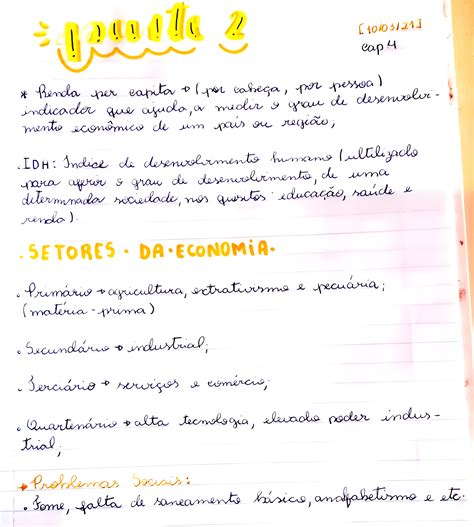 [10/03/21]
cap 4
* Renda per capita → (por cabeça, por pessoa)
indicador que ajuda, a medir o grau de desenvolvi-
mento econômico de um país ou região;
. IDH: Índice de desenvolvimento humano (ultilizado
para aferir o grau de desenvolvimento, de uma
determinada sociedade, nos quesitos educação, saúde e
renda).
. SETORES . DA . ECONOMIA .
. Primário → agricultura, extrativismo e pecuária;
(matéria-prima)
. Secundário → industrial;
. Terciário → serviços e comércio;
. Quartenário → alta tecnologia, elevado poder indus-
trial;
→ Problemas Sociais:
. Fome, falta de saneamento básico, analfabetismo e etc.